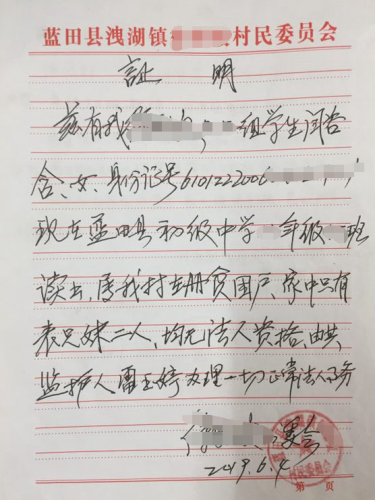 蓝田县洩湖镇 村民委员会
証 明
兹有我 组学生闫含
含、女、身份证号6101222006
现在蓝田县初级中学 年级 班
读书,属我村在册贫困户、家中只有
表兄妹二人,均无法人资格、由其
监护人雷玉婷办理一切正常法人任务
委会
2019.6.4
村民委员会
第 页